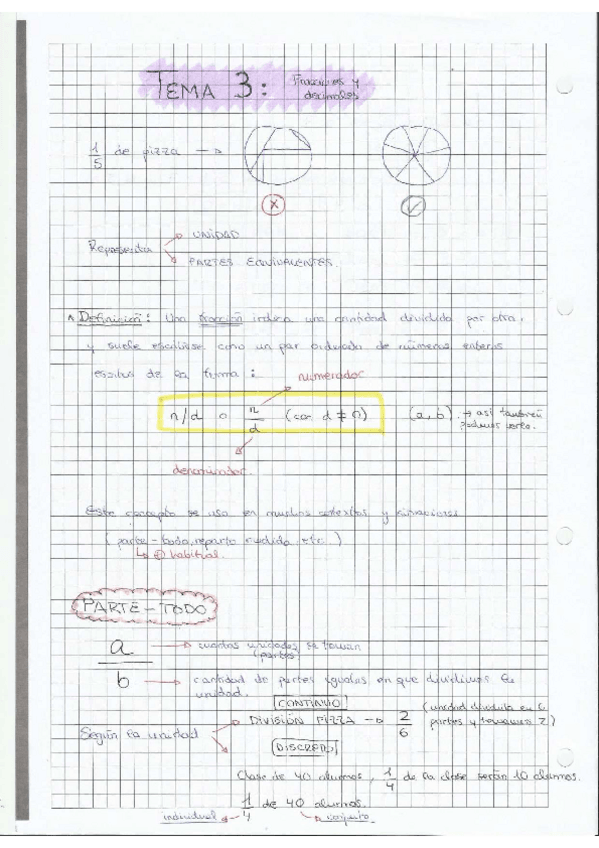 TEMA 3: Fracciones y
decimales
1/5 de pizza →
Representa → UNIDAD
→ PARTES EQUIVALENTES.
Definición: Una fracción indica una cantidad dividida por otra,
y suele escribirse como un par ordenado de números enteros
escritos de la forma:
numerador
n/d o n/d (con d ≠ 0) (a,b) → así también
podemos verlo.
denominador.
Este concepto se usa en muchos contextos y situaciones
(parte-todo, reparto, medida, etc.)
↳ habitual.
PARTE-TODO
a → cuantas unidades se toman
(partes)
b → cantidad de partes iguales en que dividimos la
unidad.
CONTINUO
Según la unidad → DIVISIÓN PIZZA → 2/6 (unidad dividida en 6
partes y tomamos 2)
DISCRETO
Clase de 40 alumnos, 1/4 de la clase serán 10 alumnos.
1/4 de 40 alumnos.
individual ← → conjunto